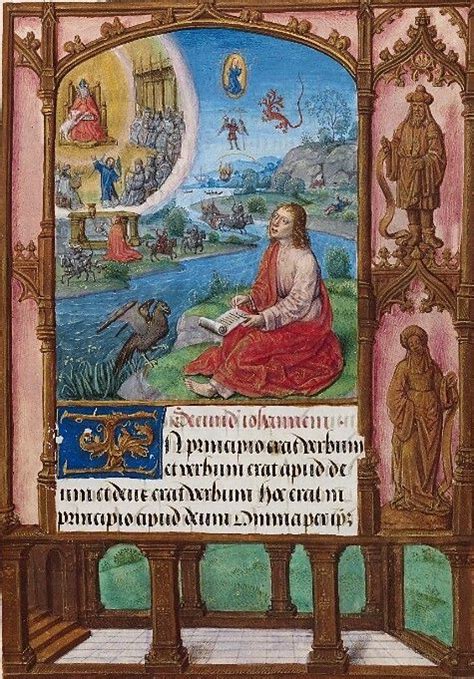 Secundũ iohannem
IN principio erat verbum
et verbum erat apud de
um et deus erat verbum Hoc erat in
principio apud deum Omnia per ip̄s